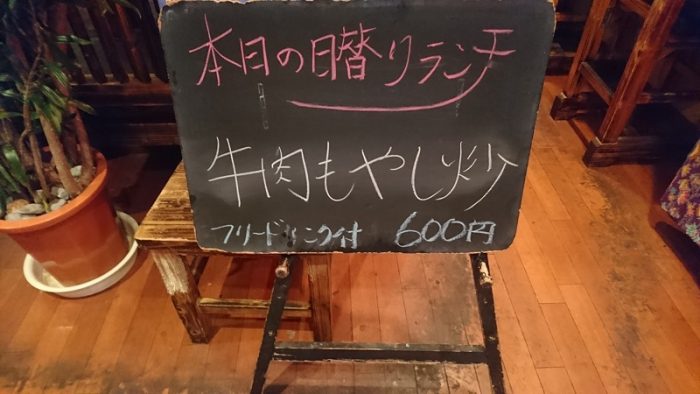 本日の日替りランチ
牛肉もやし炒
フリードリンク付 600円